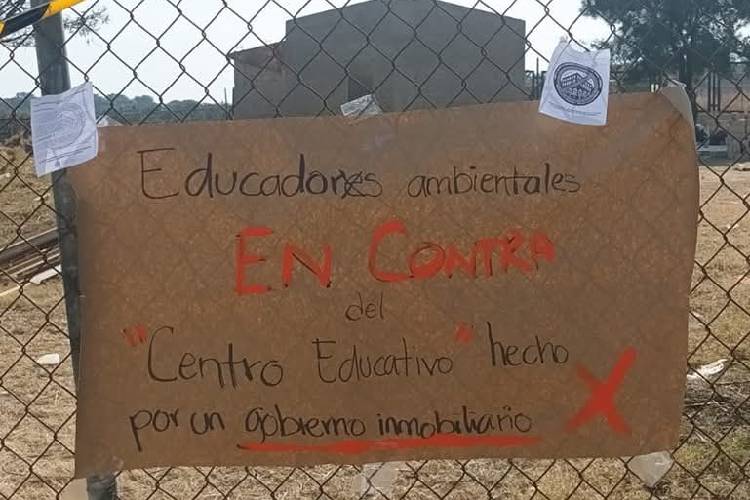 Educadorxs ambientales
EN CONTRA
del
"Centro Educativo" hecho
por un gobierno inmobiliario